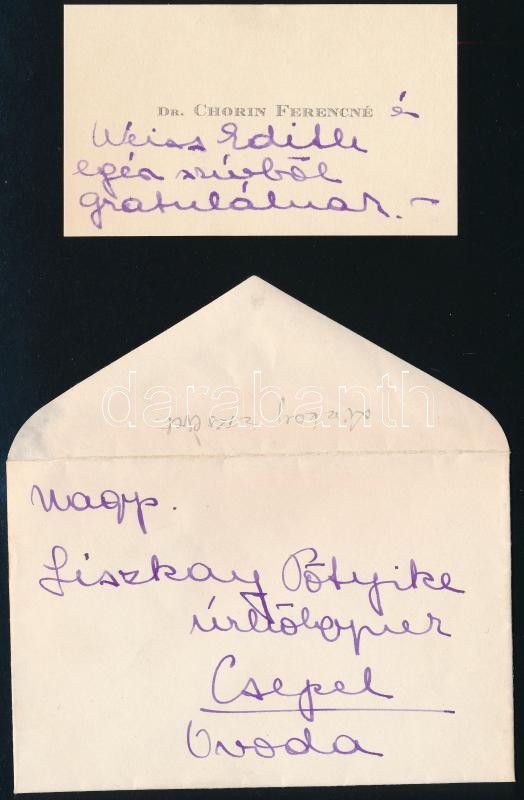 Dr. Chorin Ferencné és
Weiss Edith
egész szívből
gratulálnak. –
darabanth
Nagys.
Liszkay Pötyike
úrhölgynek
Csepel
Óvoda